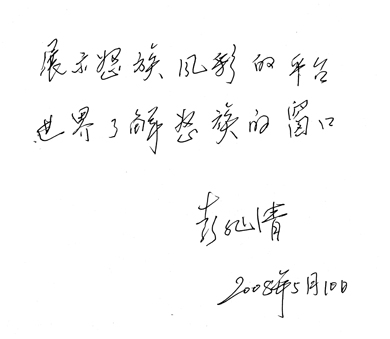 展示怒族风彩的平台
世界了解怒族的窗口
彭兆清
2008年5月10日